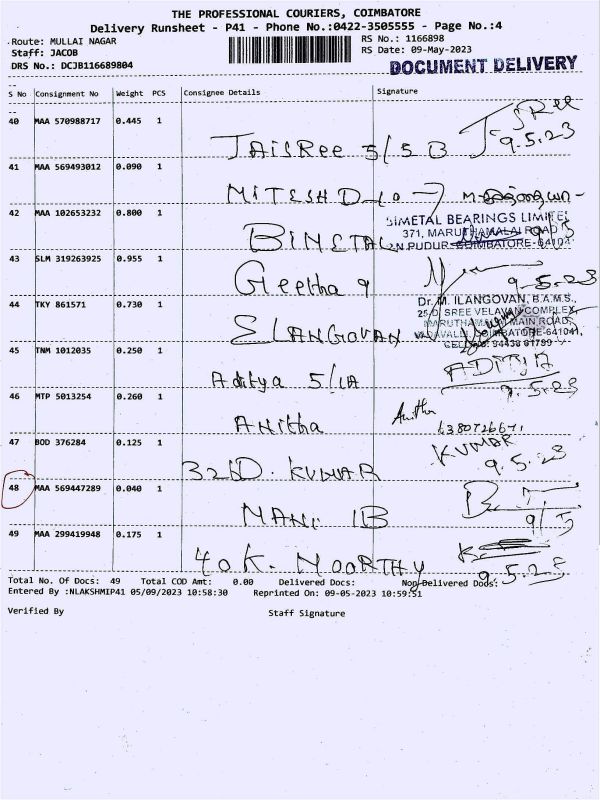 THE PROFESSIONAL COURIERS, COIMBATORE
Delivery Runsheet - P41 - Phone No.:0422-3505555 - Page No.:4
Route: MULLAI NAGAR RS No.: 1166898
Staff: JACOB RS Date: 09-May-2023
DRS No.: DCJB116689804 DOCUMENT DELIVERY
S No Consignment No Weight PCS Consignee Details Signature
40 MAA 570988717 0.445 1
JAISRee 5/5B JSRee 9.5.23
41 MAA 569493012 0.090 1
MITESH D
42 MAA 102653232 0.800 1
BIMETAL
BIMETAL BEARINGS LIMITED
371, MARUTHAMALAI ROAD
P.N PUDUR COIMBATORE-641041
43 SLM 319263925 0.955 1
Geetha 9 9-5.23
44 TKY 861571 0.730 1
ELANGOVAN
Dr. M. ILANGOVAN, B.A.M.S.,
25/D SREE VELAVAN COMPLEX,
MARUTHAMALAI MAIN ROAD,
VADAVALLI, COIMBATORE-641041,
CELL No: 94436 61799
45 TNM 1012035 0.250 1
Aditya 5/1A ADITYA 9.5.23
46 MTP 5013254 0.260 1
ANitha Anitha
47 BOD 376284 0.125 1
32D. KUMAR KUMAR 9.5.23
48 MAA 569447289 0.040 1
MANI 1B 9/5
49 MAA 299419948 0.175 1
40 K. MOORTHY 9.5.23
Total No. Of Docs: 49 Total COD Amt: 0.00 Delivered Docs: Non-Delivered Docs:
Entered By :NLAKSHMIP41 05/09/2023 10:58:30 Reprinted On: 09-05-2023 10:59:51
Verified By Staff Signature